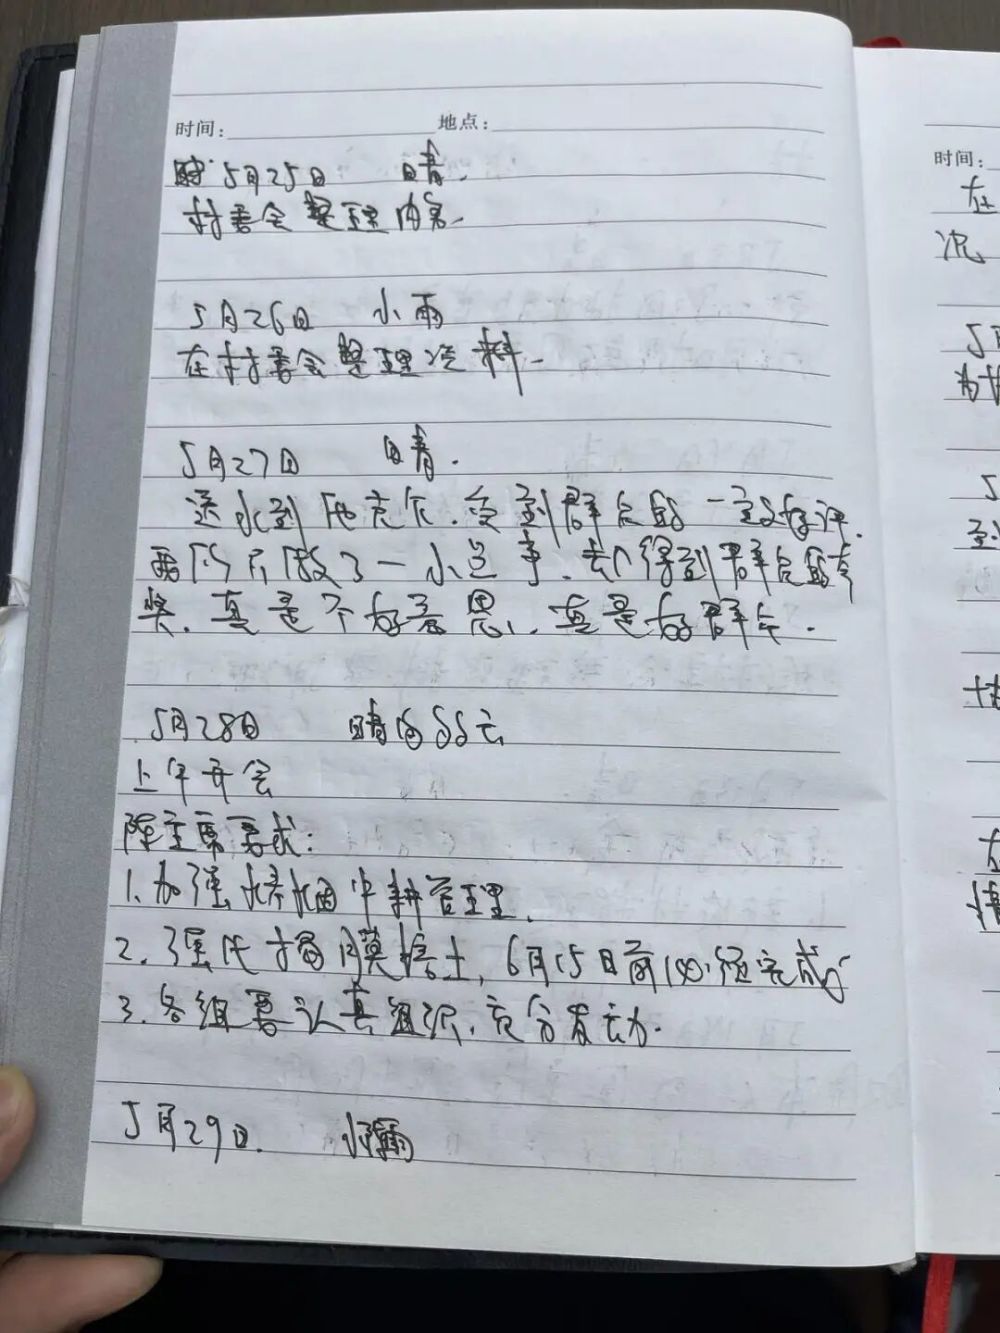 时间: 地点:
5月25日 晴.
村委会整理内务.
5月26日 小雨
在村委会整理资料.
5月27日 晴.
送水到地克尔.受到群众的一致好评.
我们只做了一小些事.却得到群众的夸
奖.真是不好意思,真是好群众.
5月28日 晴间多云
上午开会
陈主席要求:
1.加强烤烟中耕管理.
2.强化揭膜培土,6月15日前必须完成
3.各组要认真组织,充分发动.
5月29日. 小雨
时间:
在
况
5月
为
5
到
在
情